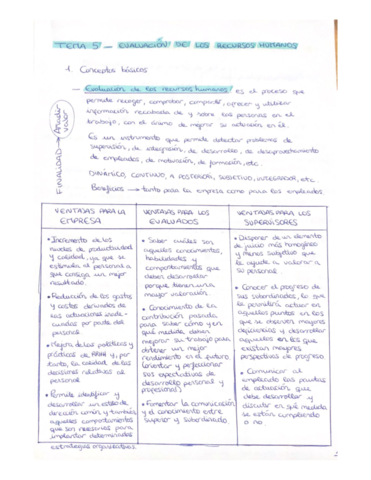 TEMA 5 - EVALUACIÓN DE LOS RECURSOS HUMANOS
1. Conceptos básicos
Evaluación de los recursos humanos es el proceso que
permite recoger, comprobar, compartir, ofrecer y utilizar
información recabada de y sobre las personas en el
trabajo, con el ánimo de mejorar su actuación en él.
Es un instrumento que permite detectar problemas de
supervisión, de integración, de desarrollo, de desaprovechamiento
de empleados, de motivación, de formación, etc.
DINÁMICO, CONTINUO, A POSTERIORI, SUBJETIVO, INTEGRADOR, etc.
Beneficios → tanto para la empresa como para los empleados.
FINALIDAD → Añadir
valor
VENTAJAS PARA LA
EMPRESA
• Incremento de los
niveles de productividad
y calidad, ya que se
estimula al personal a
que consiga un mejor
resultado.
• Reducción de los gastos
y costes derivados de
las actuaciones
por parte del
personal
• Mejora de las políticas y
prácticas de RRHH y, por
tanto, de la calidad de las
decisiones relativas al
personal
• Permite identificar y
desarrollar un estilo de
dirección común y también
aquellos comportamientos
que son necesarios para
implantar determinadas
estrategias organizativas.
VENTAJAS PARA LOS
EVALUADOS
• Saber cuáles son
aquellos conocimientos,
habilidades y
comportamientos que
deben desarrollar
porque tienen una
mayor valoración
• Conocimiento de la
contribución pasada,
para saber cómo y en
qué medida deben
mejorar su trabajo para
obtener un mejor
rendimiento en el futuro
(orientar y profesionar
sus expectativas de
desarrollo personal y
profesional)
• Fomentar la comunicación
y el conocimiento entre
superior y subordinado.
VENTAJAS PARA LOS
SUPERVISORES
• Disponer de un elemento
de juicio más homogéneo
y menos subjetivo que
le ayuda a valorar a
su personal
• Conocer el progreso de
sus subordinados, lo que
le permitirá actuar en
aquellos puntos en los
que se observen mayores
deficiencias y desarrollar
aquellos en los que
existan mayores
perspectivas de progreso.
• Comunicar al
empleado las pautas
de actuación que
debe desarrollar y
discutir en qué medida
se están cumpliendo
o no